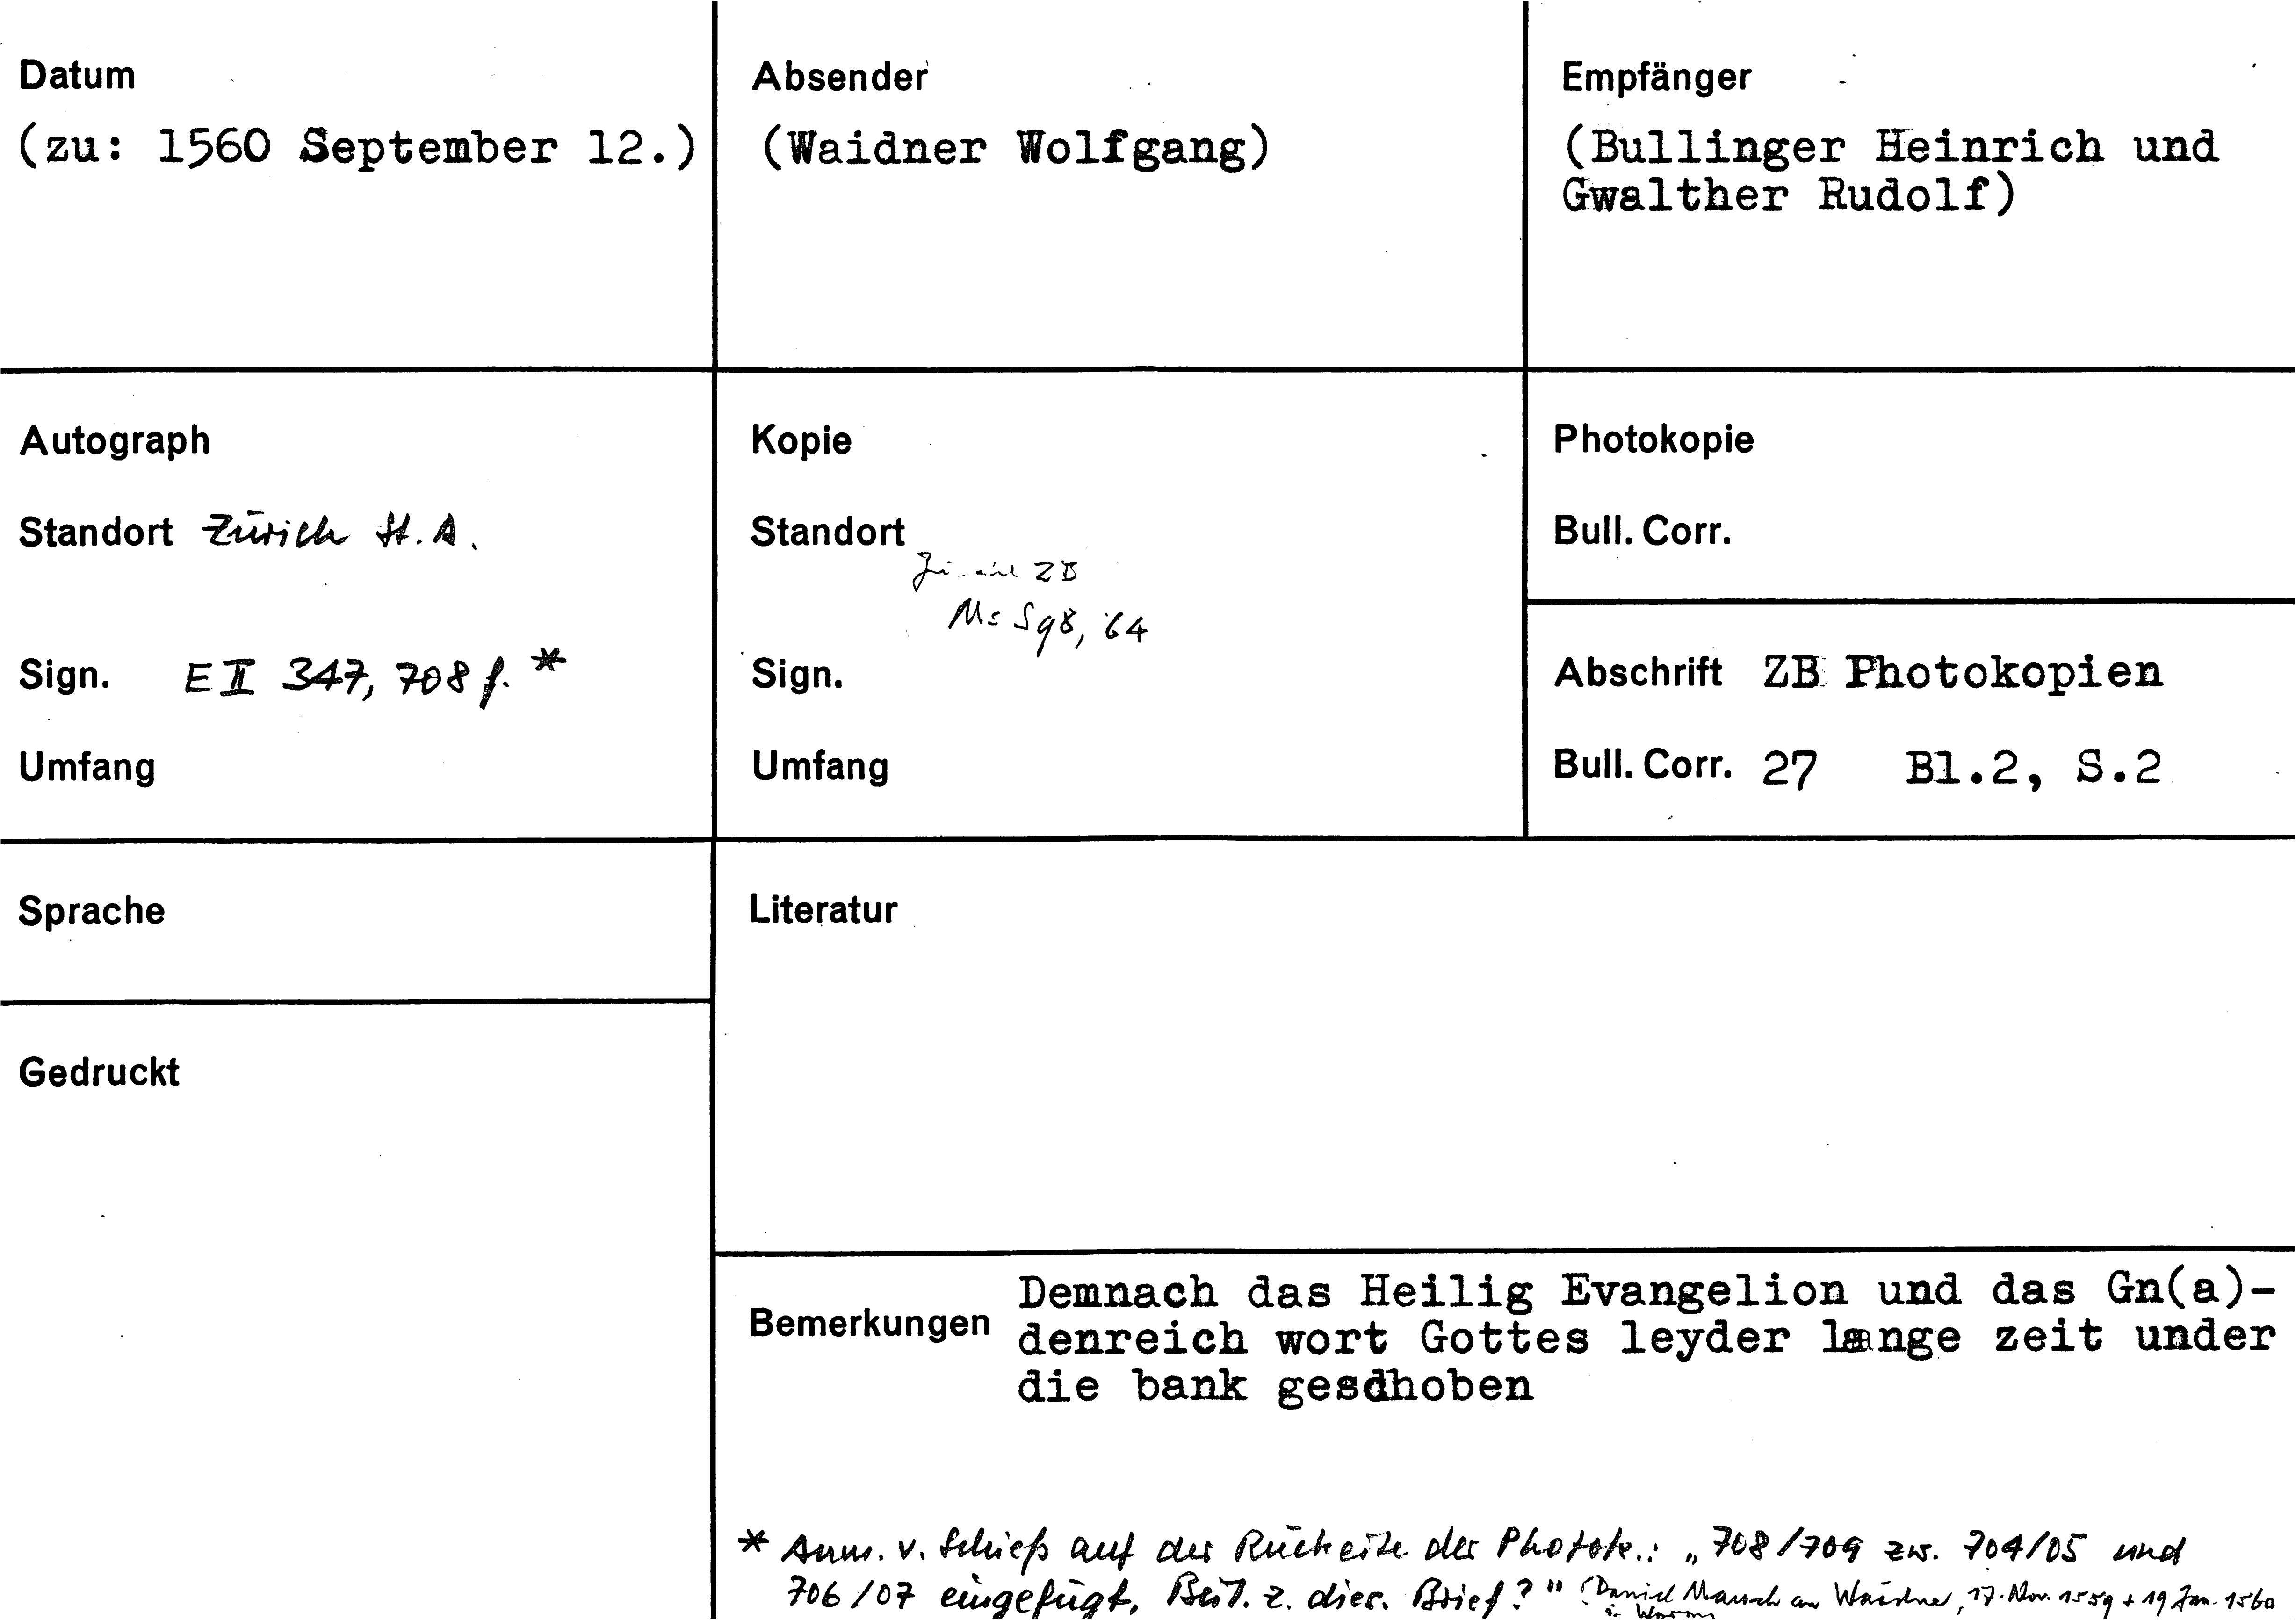 Datum
(zu: 1560 September 12.)
Absender
(Waidner Wolfgang)
Empfänger
(Bullinger Heinrich und
Gwalther Rudolf)
Autograph
Standort Zürich St. A.
Sign. E II 347, 708 f. *
Umfang
Kopie
Standort
ZB
Ms S 98, 64
Sign.
Umfang
Photokopie
Bull. Corr.
Abschrift ZB Photokopien
Bull. Corr. 27 Bl.2, S.2
Sprache
Gedruckt
Literatur
Bemerkungen Demnach das Heilig Evangelion und das Gn(a)-
denreich wort Gottes leyder lange zeit under
die bank gesdhoben
* Anm. v. Schieß auf der Rückseite der Photok.: „708/709 zw. 704/05 und
706/07 eingefügt, Beil. z. dies. Brief?" (Daniel an Waidner, 17. Nov. 1559 + 19 Jan. 1560